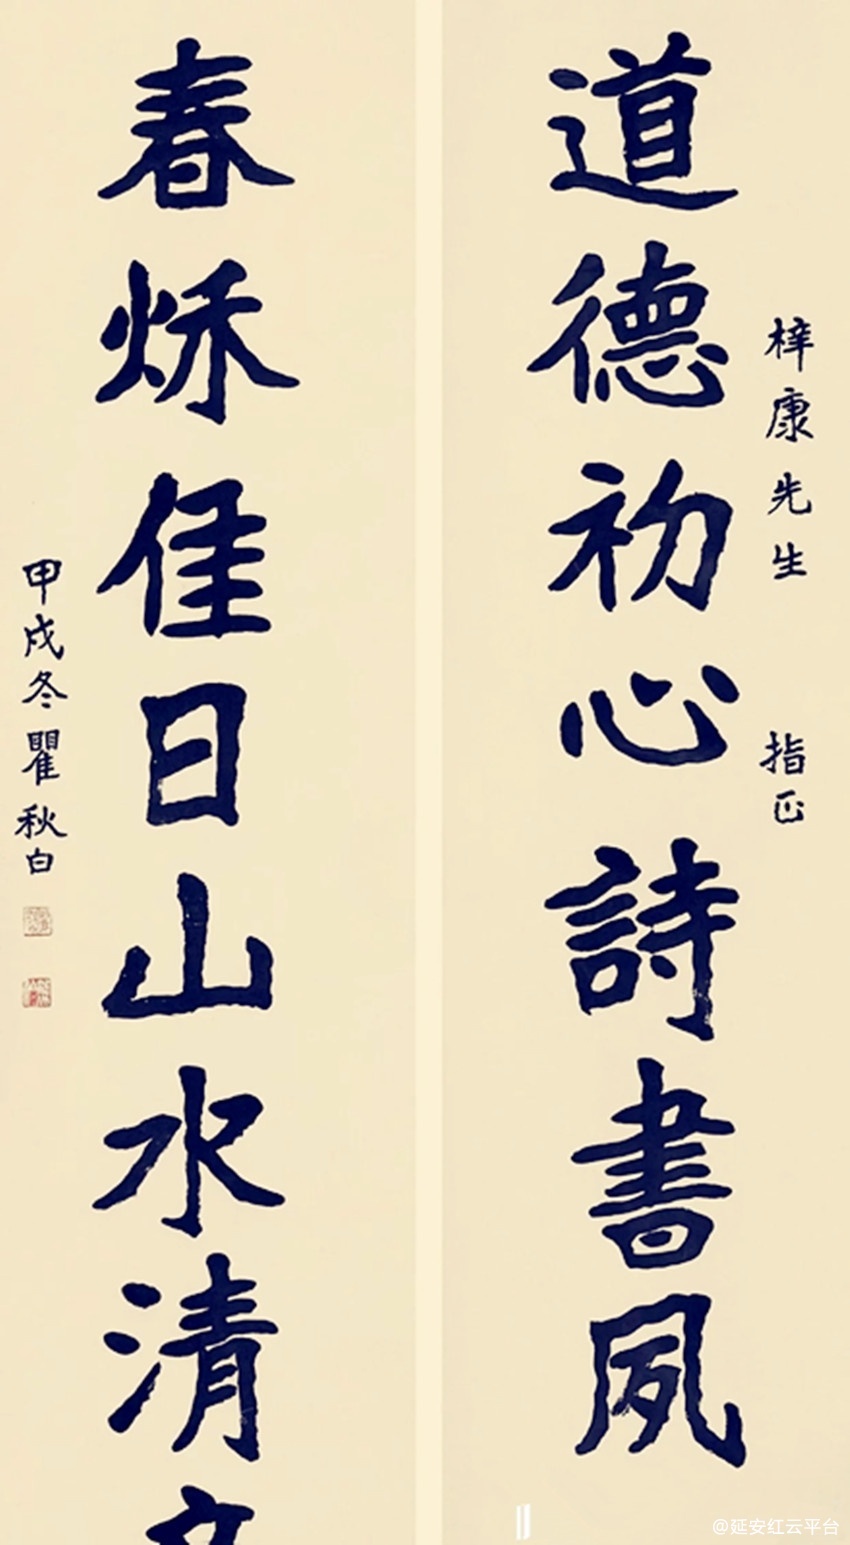 梓康先生 指正
道德初心詩書夙
春烌佳日山水清
甲戌冬瞿秋白
@延安红云平台